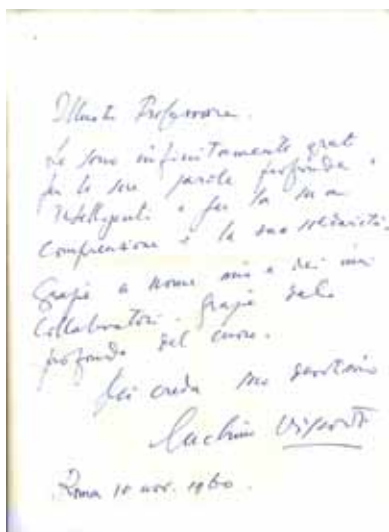 Illustre Professore.
Le sono infinitamente grato
per le sue parole profonde e
intelligenti e per la sua
comprensione e la sua solidarietà.
Grazie a nome mio e dei miei
collaboratori. Grazie dal
profondo del cuore.
Mi creda suo devotissimo
Luchino Visconti
Roma 10 nov. 1960.